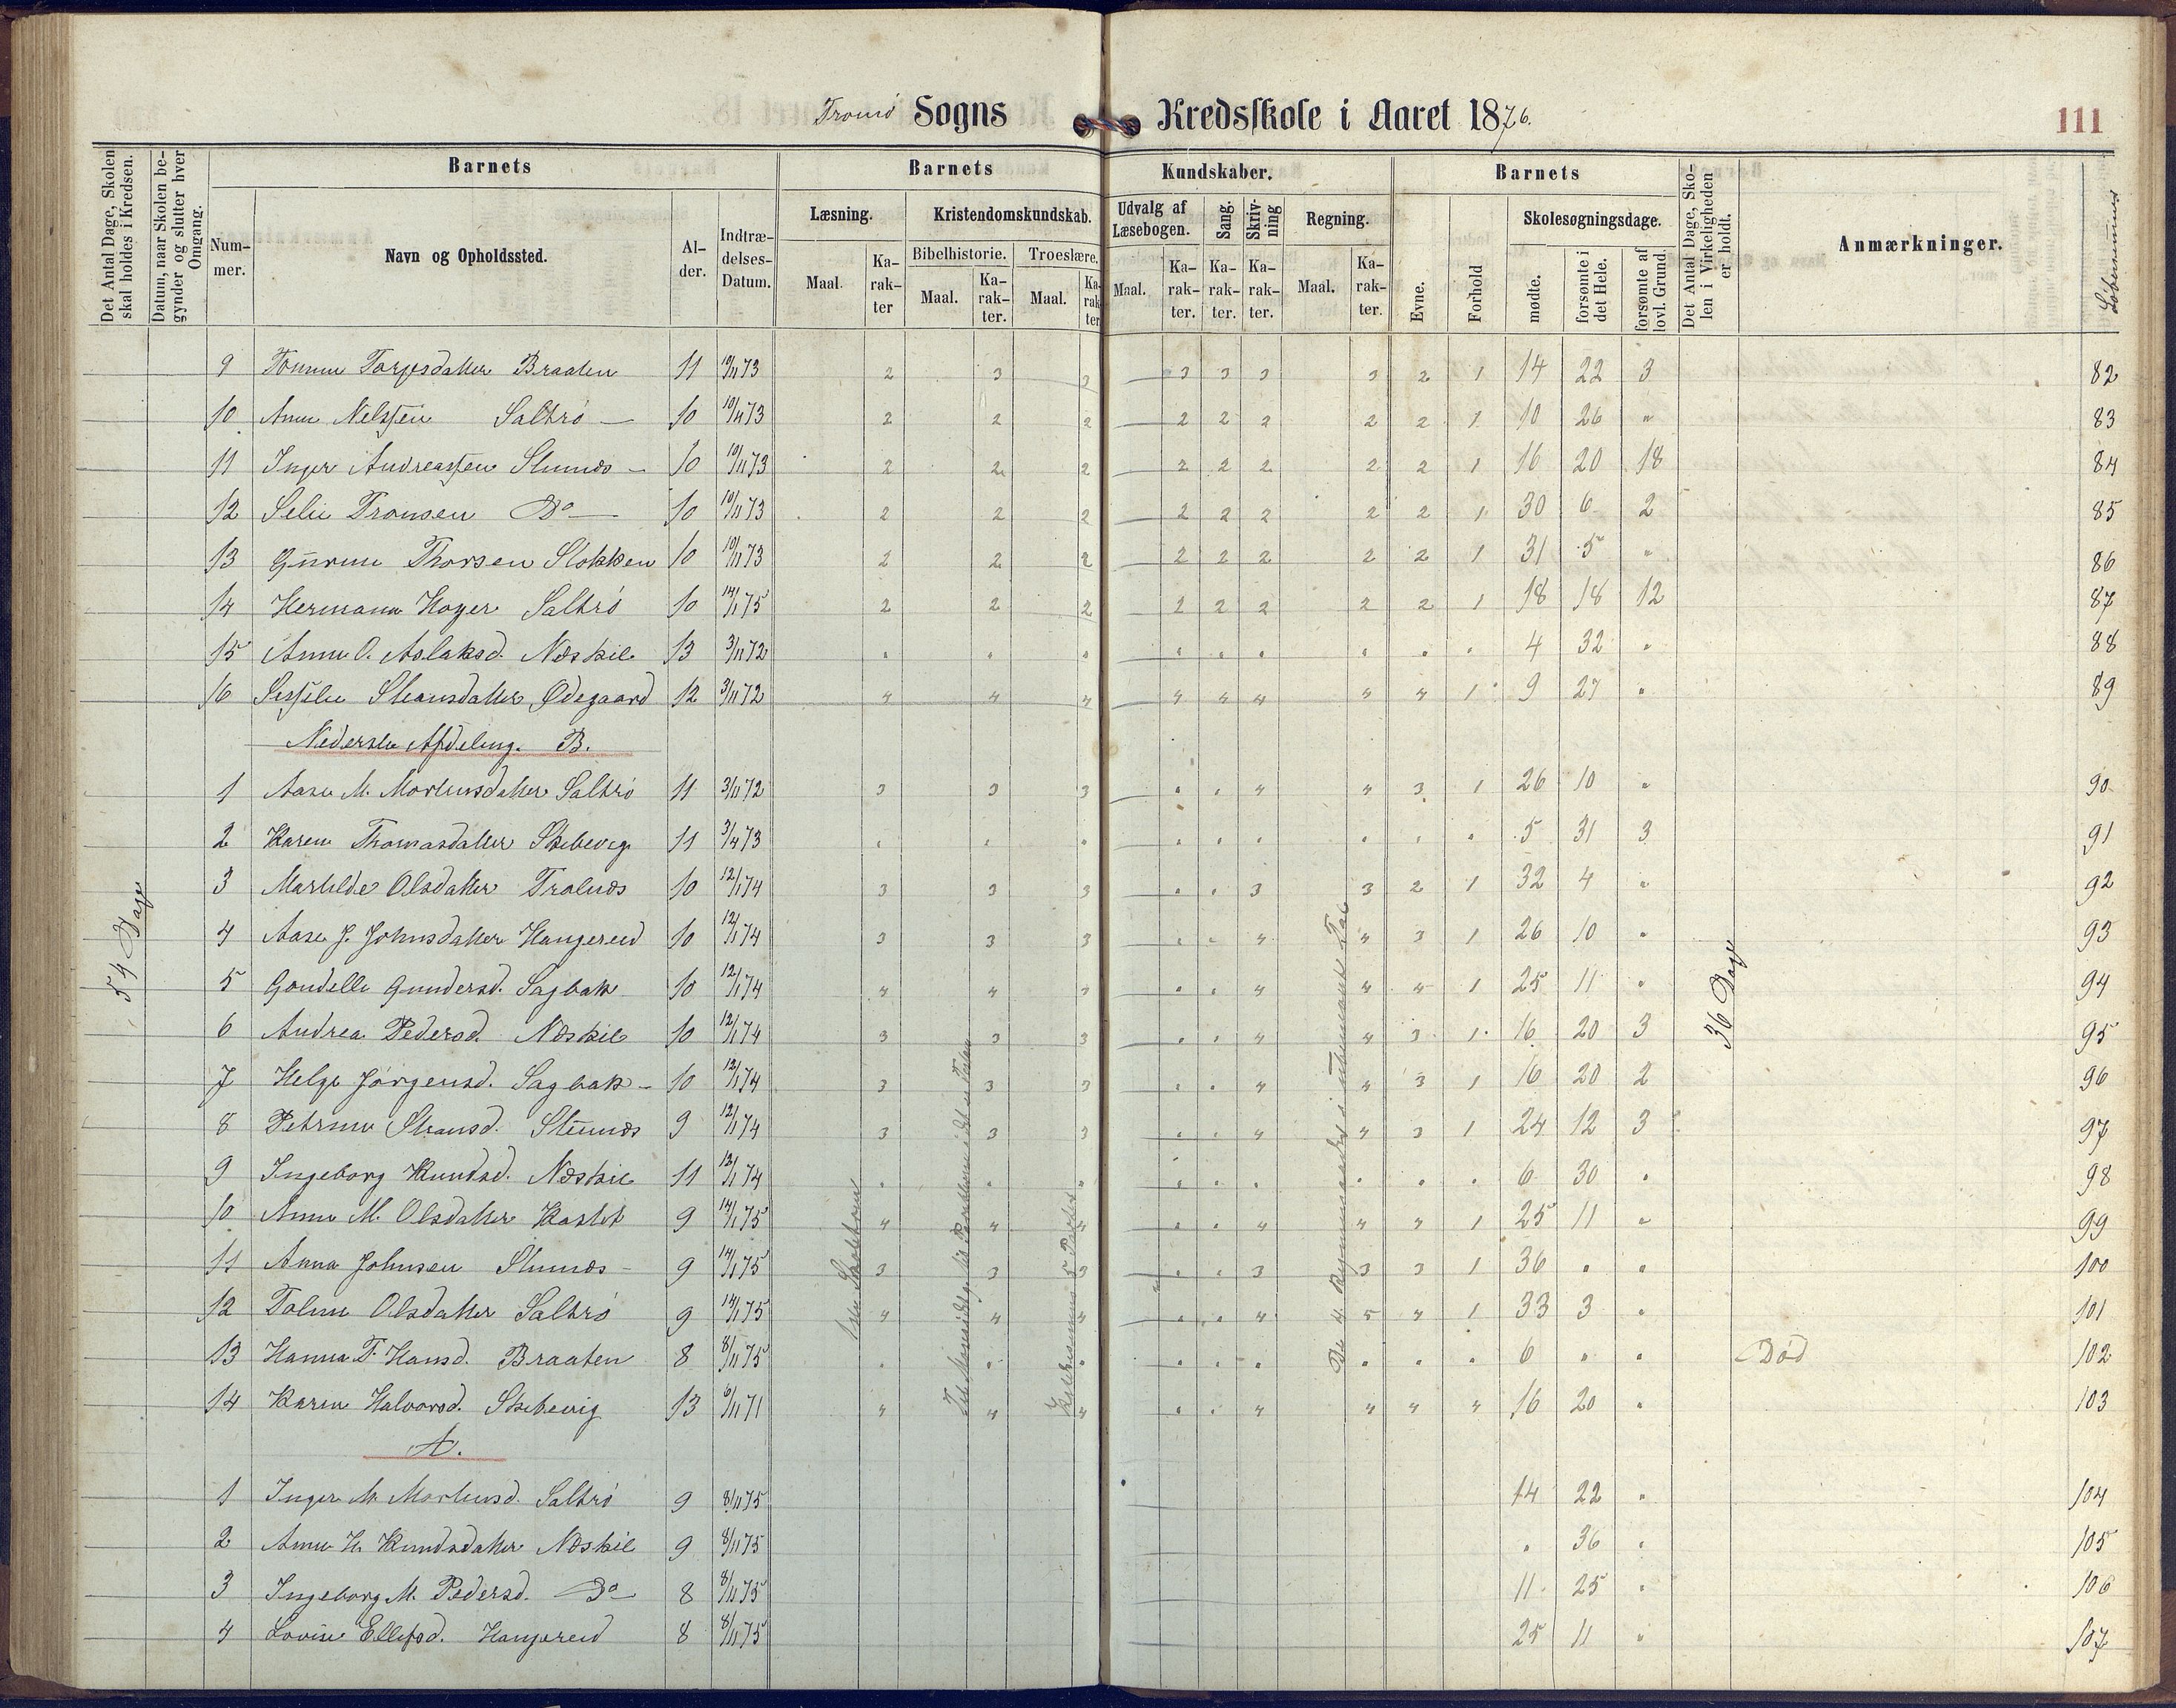 Tromø Sogns Kredsskole i Aaret 1876.
111
Det Antal Dage, Skolen skal holdes i Kredsen.
Datum, naar Skolen begynder og slutter hver Omgang.
Barnets
Num-mer.
Navn og Opholdssted.
Al-der.
Indtræ-delses-Datum.
Barnets Kundskaber.
Læsning.
Maal.
Ka-rak-ter
Kristendomskundskab.
Bibelhistorie.
Maal.
Ka-rak-ter.
Troeslære.
Maal.
Ka-rak-ter
Udvalg af Læsebogen.
Maal.
Ka-rak-ter.
Sang.
Ka-rak-ter.
Skriv-ning
Ka-rak-ter.
Regning.
Maal.
Ka-rak-ter.
Barnets
Evne.
Forhold
Skolesøgningsdage.
mødte.
forsømte i det Hele.
forsømte af lovl. Grund.
Det Antal Dage, Sko-len i Virkeligheden er holdt.
Anmærkninger.
Løbenummer
9 Torjesdatter Braaten 11 10/11 73 2 3 3 3 3 3 3 2 1 14 22 3 82
10 Anne Nelsen Saltrø — 10 10/11 73 2 2 2 2 2 2 2 2 1 10 26 " 83
11 Inger Andreassen Stumnæs — 10 10/11 73 2 2 2 2 2 2 2 2 1 16 20 18 84
12 Selie Tronsen Do — 10 10/11 73 2 2 2 2 2 2 2 2 1 30 6 2 85
13 Gunne Thorsen Stokken 10 10/11 73 2 2 2 2 2 2 2 2 1 31 5 " 86
14 Hermann Hoyer Saltrø 10 14/1 75 2 2 2 2 2 2 2 2 1 18 18 12 87
15 Anne O. Aslaksd. Næskil 13 3/11 72 " " " " " " " " " 4 32 " 88
16 Sissilie Steansdatter Ødegaard 12 3/11 72 4 4 4 4 4 4 4 4 1 9 27 " 89
Nederste Afdeling. B.
1 Aase M. Mortensdatter Saltrø 11 3/11 72 3 3 3 " " 4 4 3 1 26 10 " 90
2 Karen Thomasdatter Skibevig 11 3/4 73 " " " " " " " " " 5 31 3 91
3 Marhilde Olsdatter Tralnæs 10 12/1 74 3 3 3 " " 3 3 2 1 32 4 " 92
4 Aase J. Johnsdatter Haugereid 10 12/1 74 3 3 3 " " 4 4 3 1 26 10 " 93
5 Gondelle Gundersd. Sagbak 10 12/1 74 4 4 3 " " 4 4 4 1 25 11 " 94
6 Andrea Pedersd. Næskil 10 12/1 74 3 3 3 " " 4 4 3 1 16 20 3 95
7 Helge Jørgensd. Sagbak — 10 12/1 74 3 3 3 " " 4 4 3 1 16 20 2 96
8 Petrine Steansd. Stumnæs 9 12/1 74 3 3 3 " " 4 4 3 1 24 12 3 97
9 Ingeborg Knudsd. Næskil 11 12/1 74 " " " " " " " " " 6 30 " 98
10 Anne M. Olsdatter Kastet 9 14/1 75 4 4 " " " 4 4 4 1 25 11 " 99
11 Anna Johnsen Stumnæs — 9 14/1 75 3 3 3 " " 3 3 3 1 36 " " 100
12 Toline Olsdatter Saltrø 9 14/1 75 4 4 4 " " 4 5 4 1 33 3 " 101
13 Hanna T. Hansd. Braaten 8 8/11 75 " " " " " " " " " 6 " " Død 102
14 Karen Halvorsd. Skibevig 13 6/11 71 4 4 4 " " 4 4 4 4 16 20 " 103
A.
1 Inger M. Mortensd. Saltrø 9 8/11 75 14 22 " 104
2 Anne H. Knudsdatter Næskil 9 8/11 75 " 36 " 105
3 Ingeborg M. Pedersd. Do — 8 8/11 75 11 25 " 106
4 Lovise Ellefsd. Haugereid 8 8/11 75 25 11 " 107
54 Dage
36 Dage
De 4 Regningsarter i ubenævnte Tal